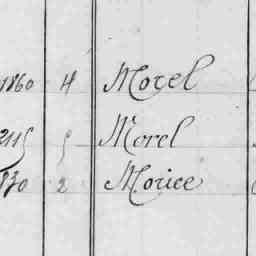 1860 4 Morel
2115 5 Morel
1830 2 Morice